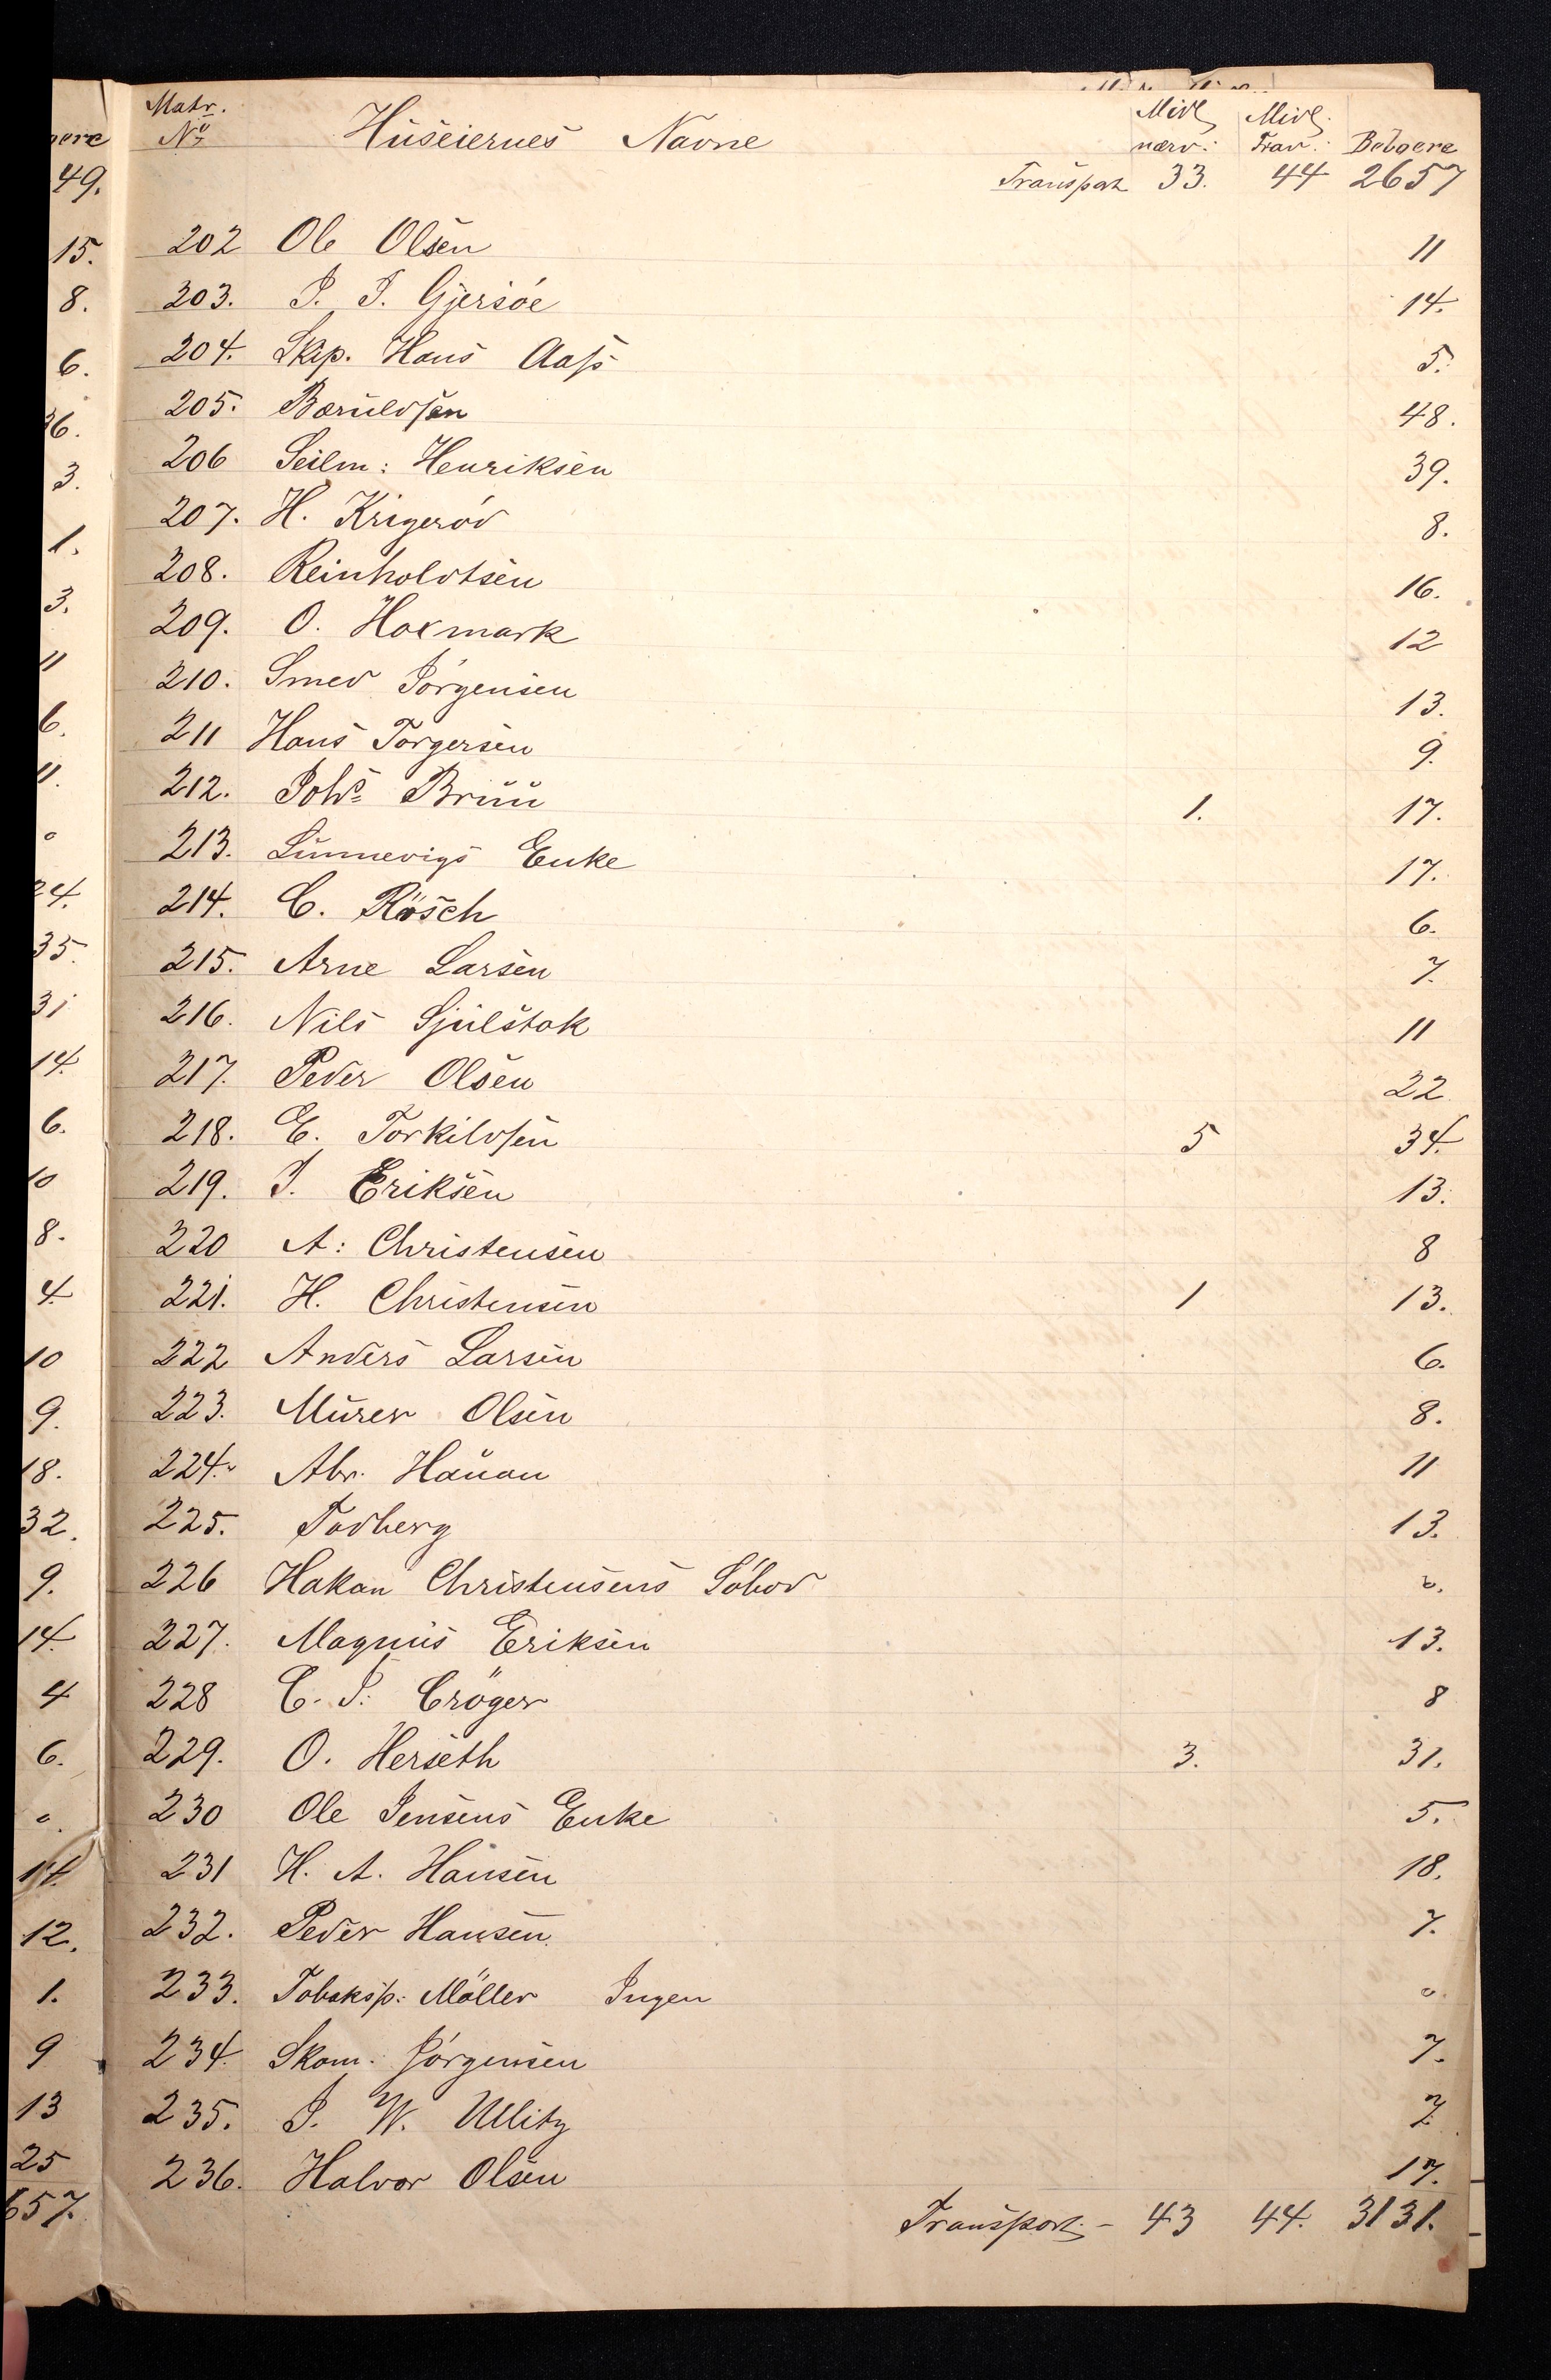 Matr. No Huseiernes Navne Midl. nærv. Midl. Frav. Beboere
Transport 33. 44 2657
202 Ole Olsen 11
203. P. J. Gjersöe 14.
204. Skip. Hans Aass 5.
205. Bærulvsen 48.
206 Seilm: Henriksen 39.
207. H. Krigeröd 8.
208. Reinholdtsen 16.
209. O. Hoxmark 12
210. Smed Jörgensen 13.
211 Hans Torgersen 9.
212. Johs Bruu 1. 17.
213. Lunnevigs Enke 17.
214. C. Rösch 6.
215. Arne Larsen 7.
216. Nils Sjulstok 11
217. Peder Olsen 22
218. E. Torkildsen 5 34.
219. J. Eriksen 13.
220 A: Christensen 8
221. H. Christensen 1 13.
222 Anders Larsen 6.
223. Murer Olsen 8.
224. Abr. Hauan 11
225. Fodberg 13.
226 Hakan Christensens Söbod 0.
227. Magnus Eriksen 13.
228 C. P: Cröger 8
229. O. Herseth 3. 31.
230 Ole Jensens Enke 5.
231 H. A. Hansen 18.
232. Peder Hansen 7.
233. Tobaksp: Möller Ingen 0.
234. Skom. Jörgensen 7.
235. J. W. Ullitz 7
236. Halvor Olsen 17.
Transport - 43 44. 3131.
49.
15.
8.
6.
36.
3.
1.
3.
11
6.
11.
0
24.
35.
31
14.
6.
10
8.
4.
10
9.
18.
32.
9.
14.
4
6.
0.
14.
12.
1.
9
13
25
657.